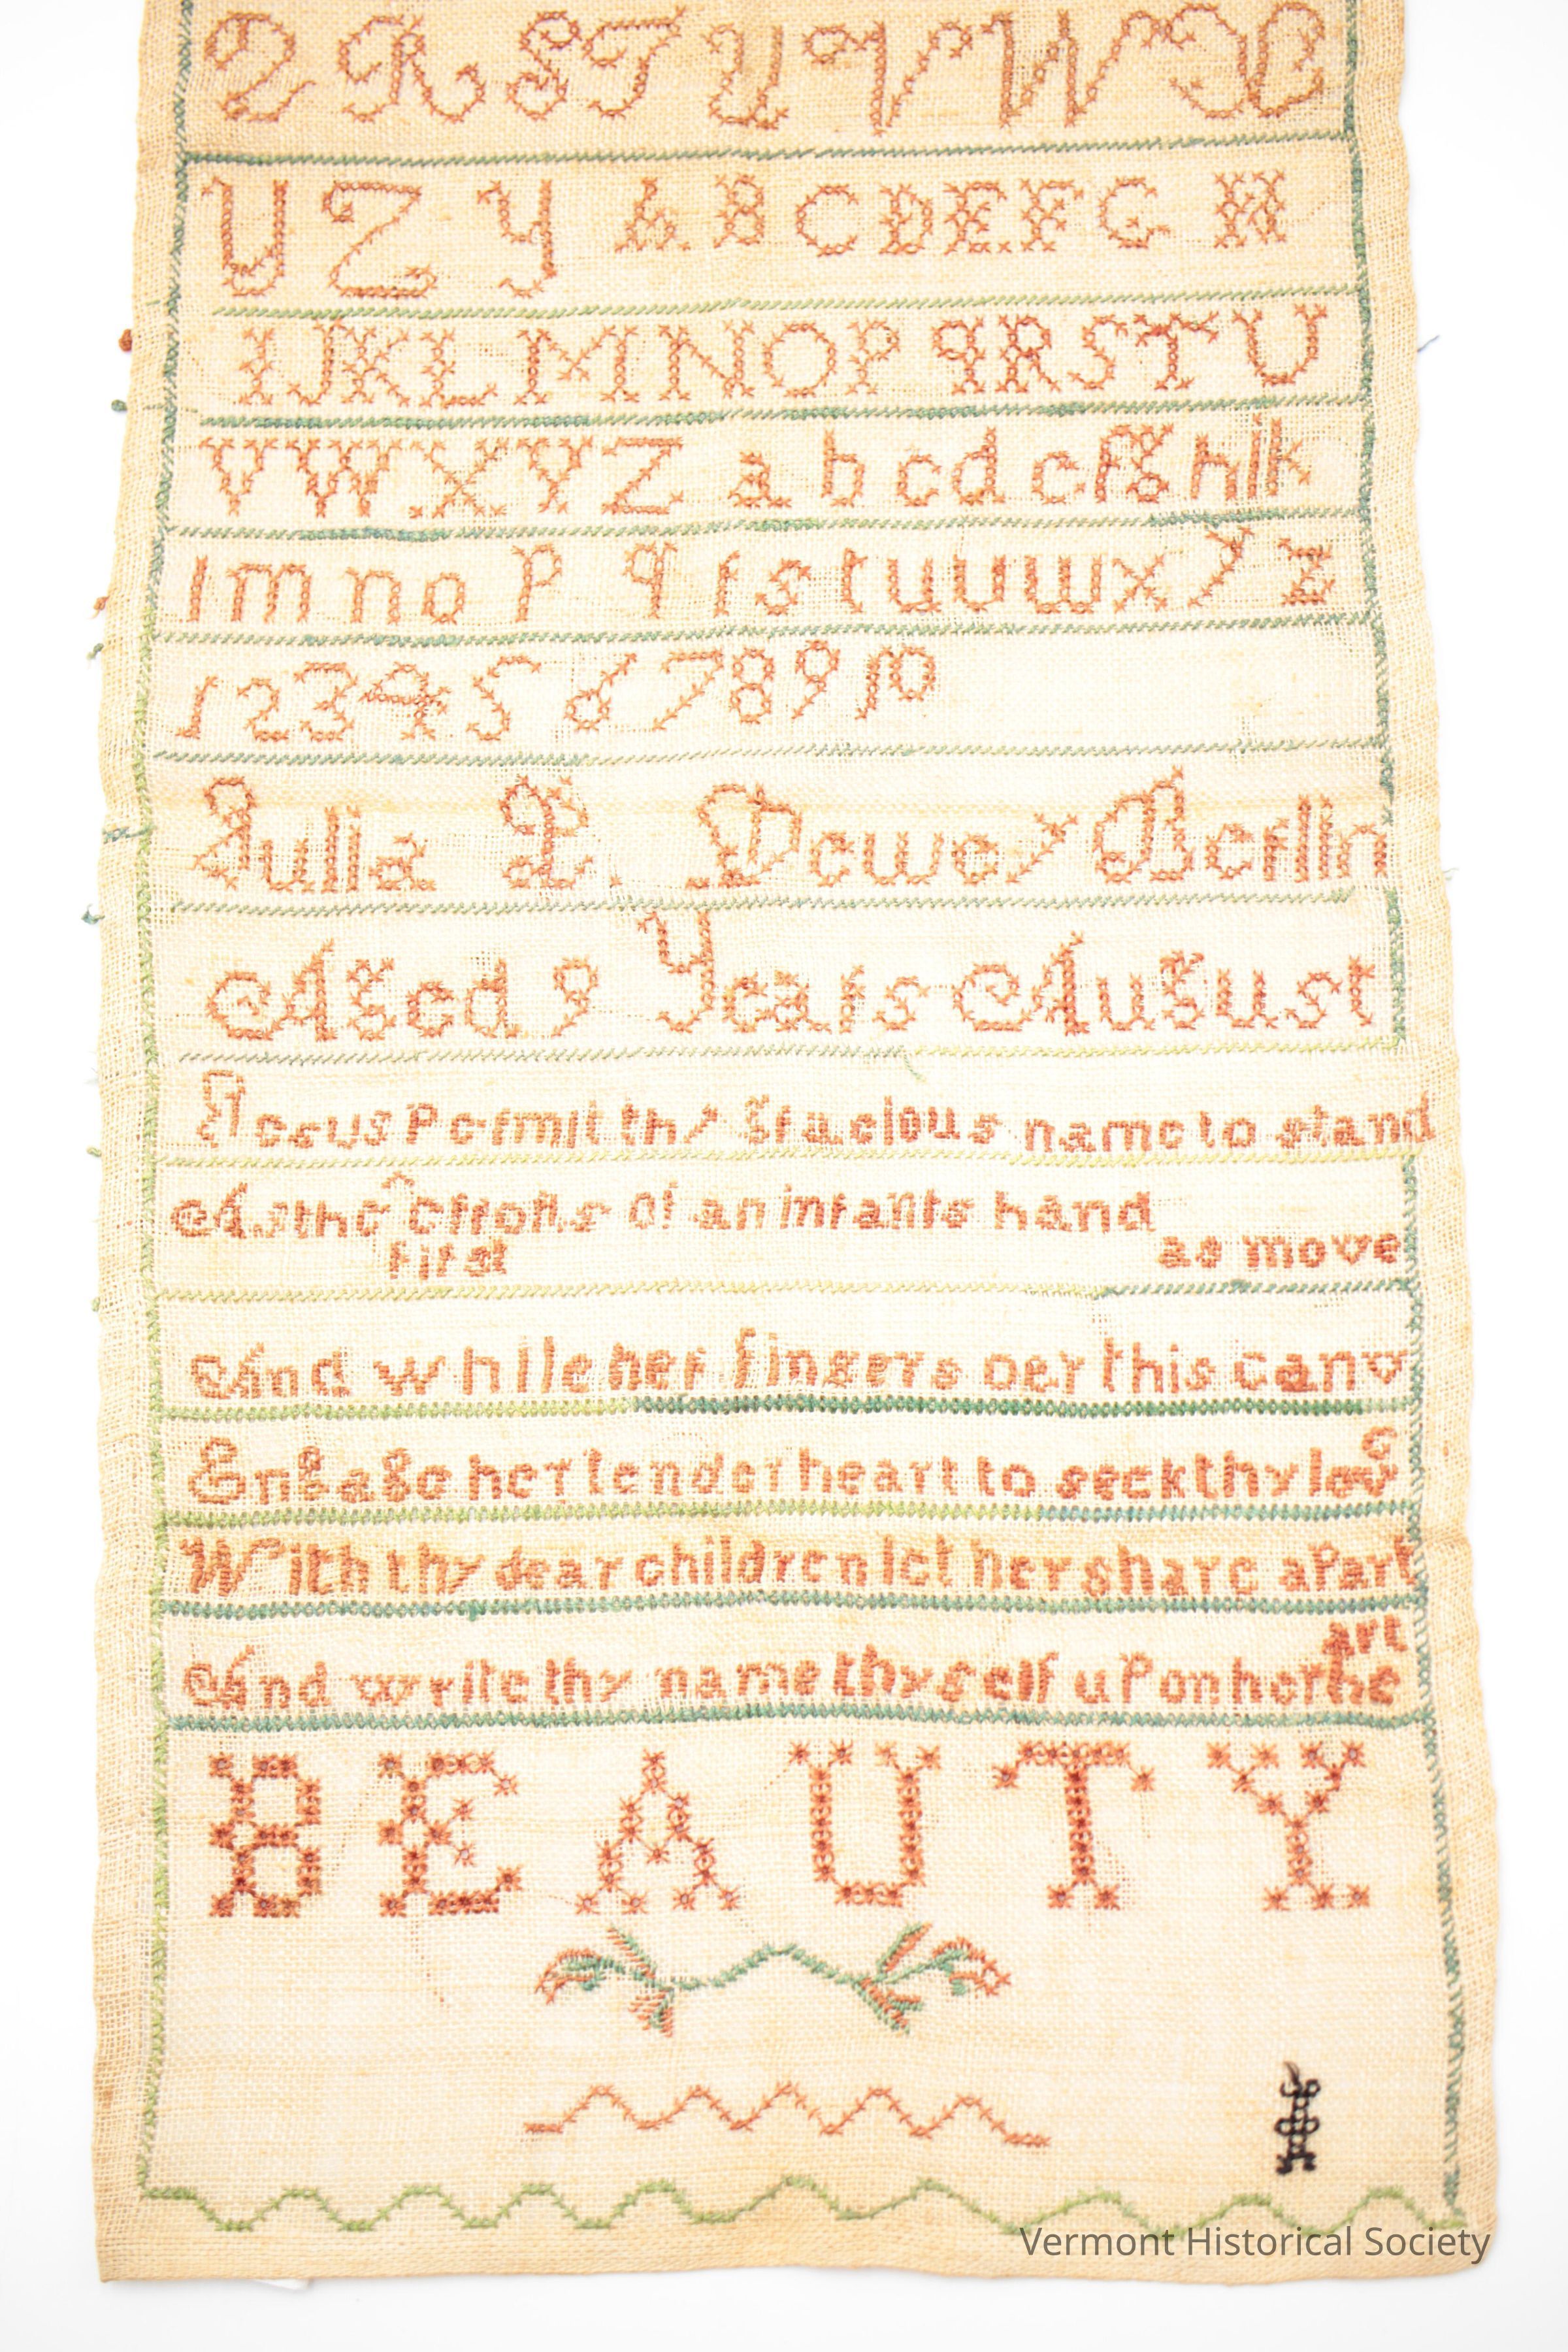 Q R S T U V W X
U Z Y A B C D E F G H
I J K L M N O P q R S T U
V W X Y Z a b c d e f g h i k
l m n o p q r s t u v w x y z
1 2 3 4 5 6 7 8 9 10
Julia P. Dewey Berlin
Aged 9 Years August
Jesus Permit thy gracious name to stand
As the ^ efforts of an infants hand
first
as move
And while her fingers oer this canv
Engage her tender heart to seek thy love
With thy dear children let her share a Part
And write thy name thyself uPon her he
art
BEAUTY
Vermont Historical Society